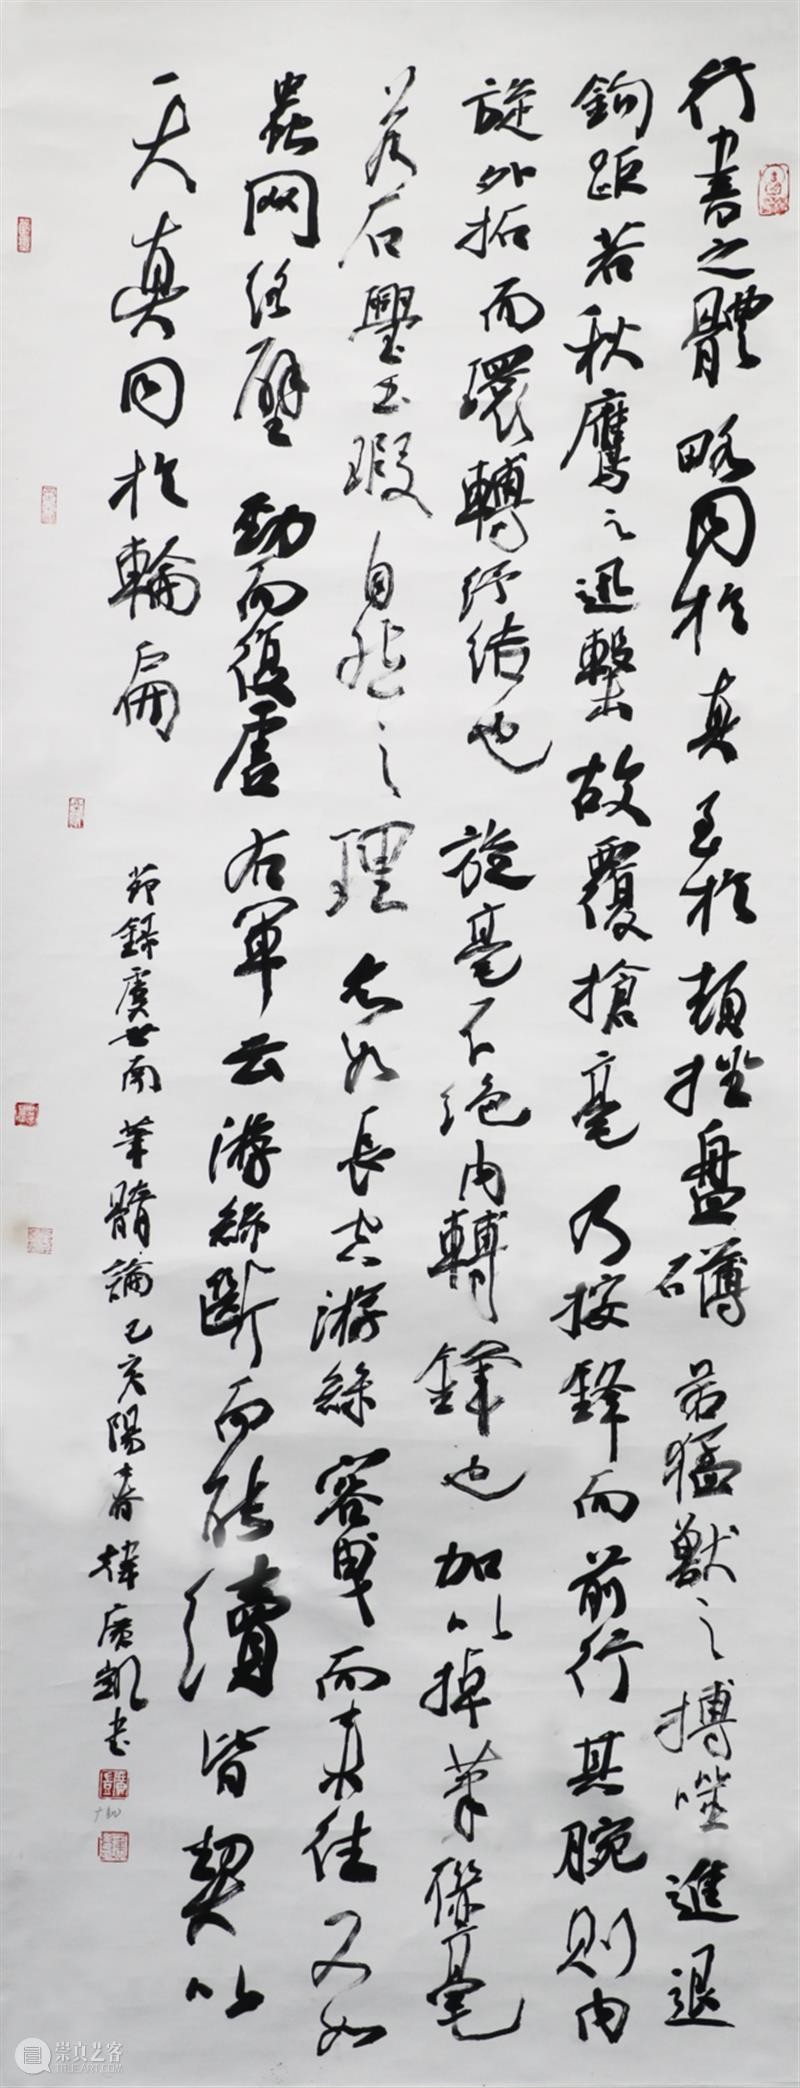 行書之體略同於真至於頓挫盘礴若猛獸之搏噬進退
鉤距若秋鷹之迅擊故覆搶毫乃按鋒而前行其腕則内
旋外拓而環轉纾结也旋毫不绝内轉鋒也加以掉筆聯毫
若石璺玉瑕自然之理亦如長空游絲容曳而来往又如
蟲网络壁勁而復虚右軍云游絲斷而能續皆契以
天真同於輪扁
節録虞世南筆髓論己亥陽春韓廣凱书
崇真艺客